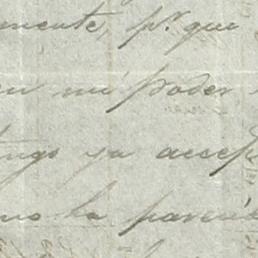 mente, pr. que
en mi poder
tengo ya acep
nos ha pareci